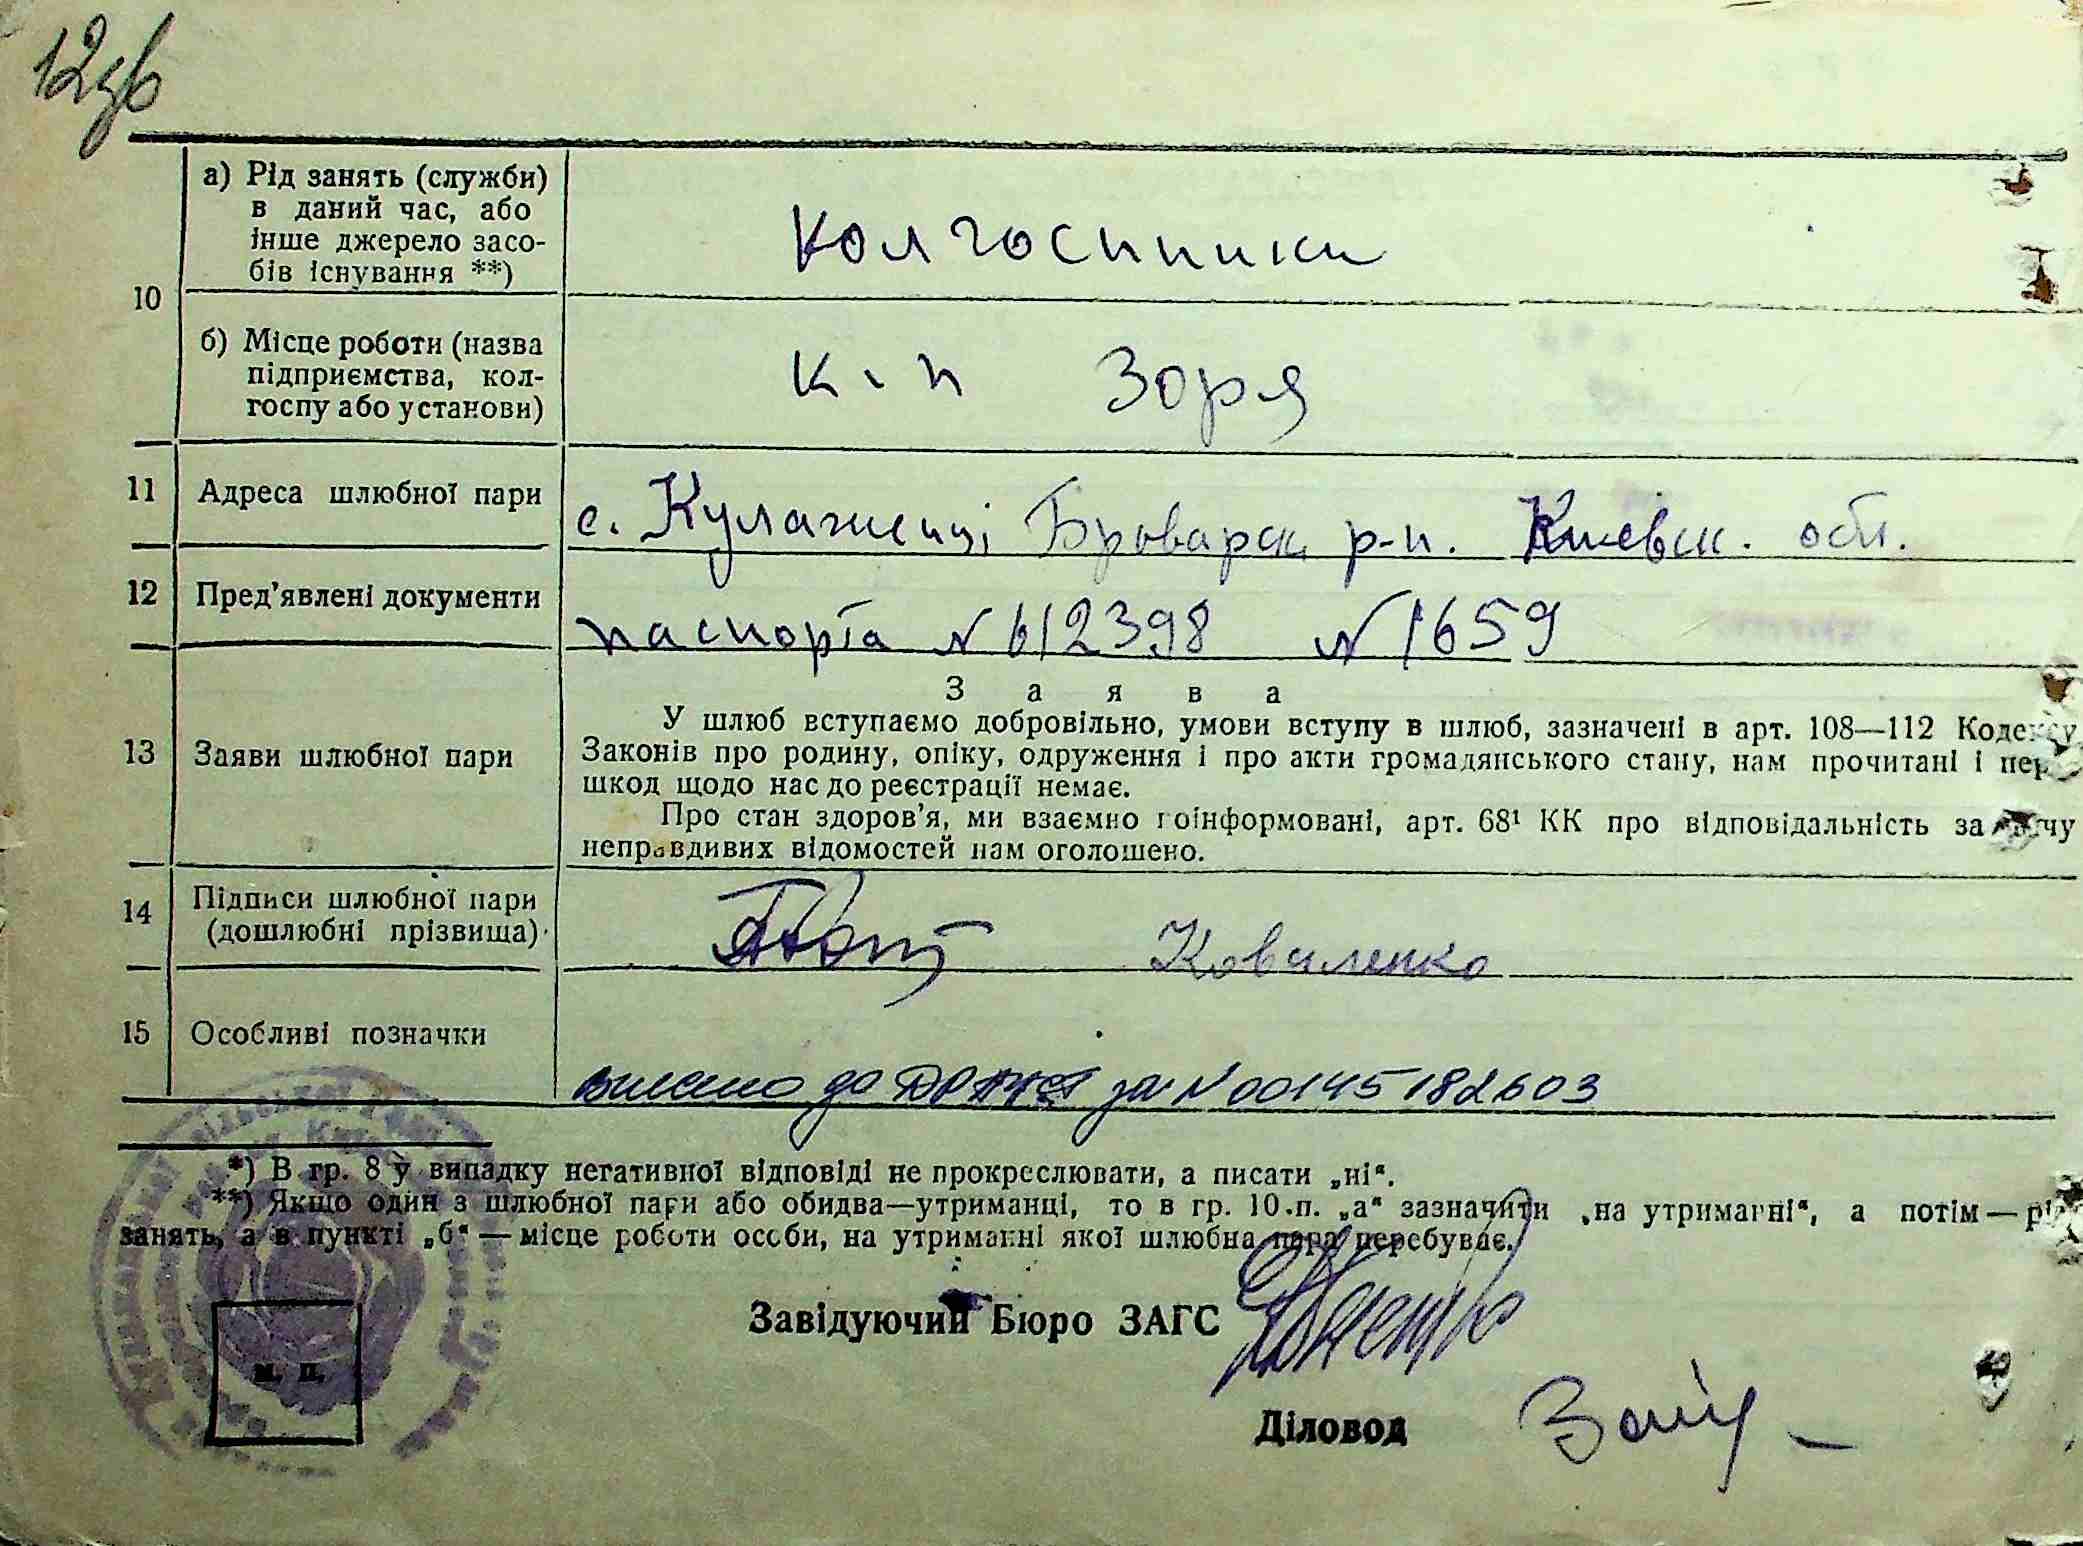 12зв
10
а) Рід занять (служби)
в даний час, або
інше джерело засо-
бів існування **)
колгоспники
б) Місце роботи (назва
підприємства, кол-
госпу або установи)
к-п Зоря
11 Адреса шлюбної пари
с. Кулаженці Броварск р-н. Київск. обл.
12 Пред’явлені документи
паспорта № 612398 № 1659
13 Заяви шлюбної пари
Заява
У шлюб вступаємо добровільно, умови вступу в шлюб, зазначені в арт. 108—112 Кодексу
Законів про родину, опіку, одруження і про акти громадянського стану, нам прочитані і пер
шкод щодо нас до реєстрації немає.
Про стан здоров’я, ми взаємно поінформовані, арт. 68¹ КК про відповідальність за чу
неправдивих відомостей нам оголошено.
14 Підписи шлюбної пари
(дошлюбні прізвища)
Коваленко
15 Особливі позначки
внесено до ДРАЦСГ за № 00145182603
*) В гр. 8 у випадку негативної відповіді не прокреслювати, а писати „ні“.
**) Якщо один з шлюбної пари або обидва—утриманці, то в гр. 10.п. „а“ зазначити „на утриманні“, а потім — рі
занять, а в пункті „б“ — місце роботи особи, на утриманні якої шлюбна пара перебуває.
Завідуючий Бюро ЗАГС
м. п.
Діловод